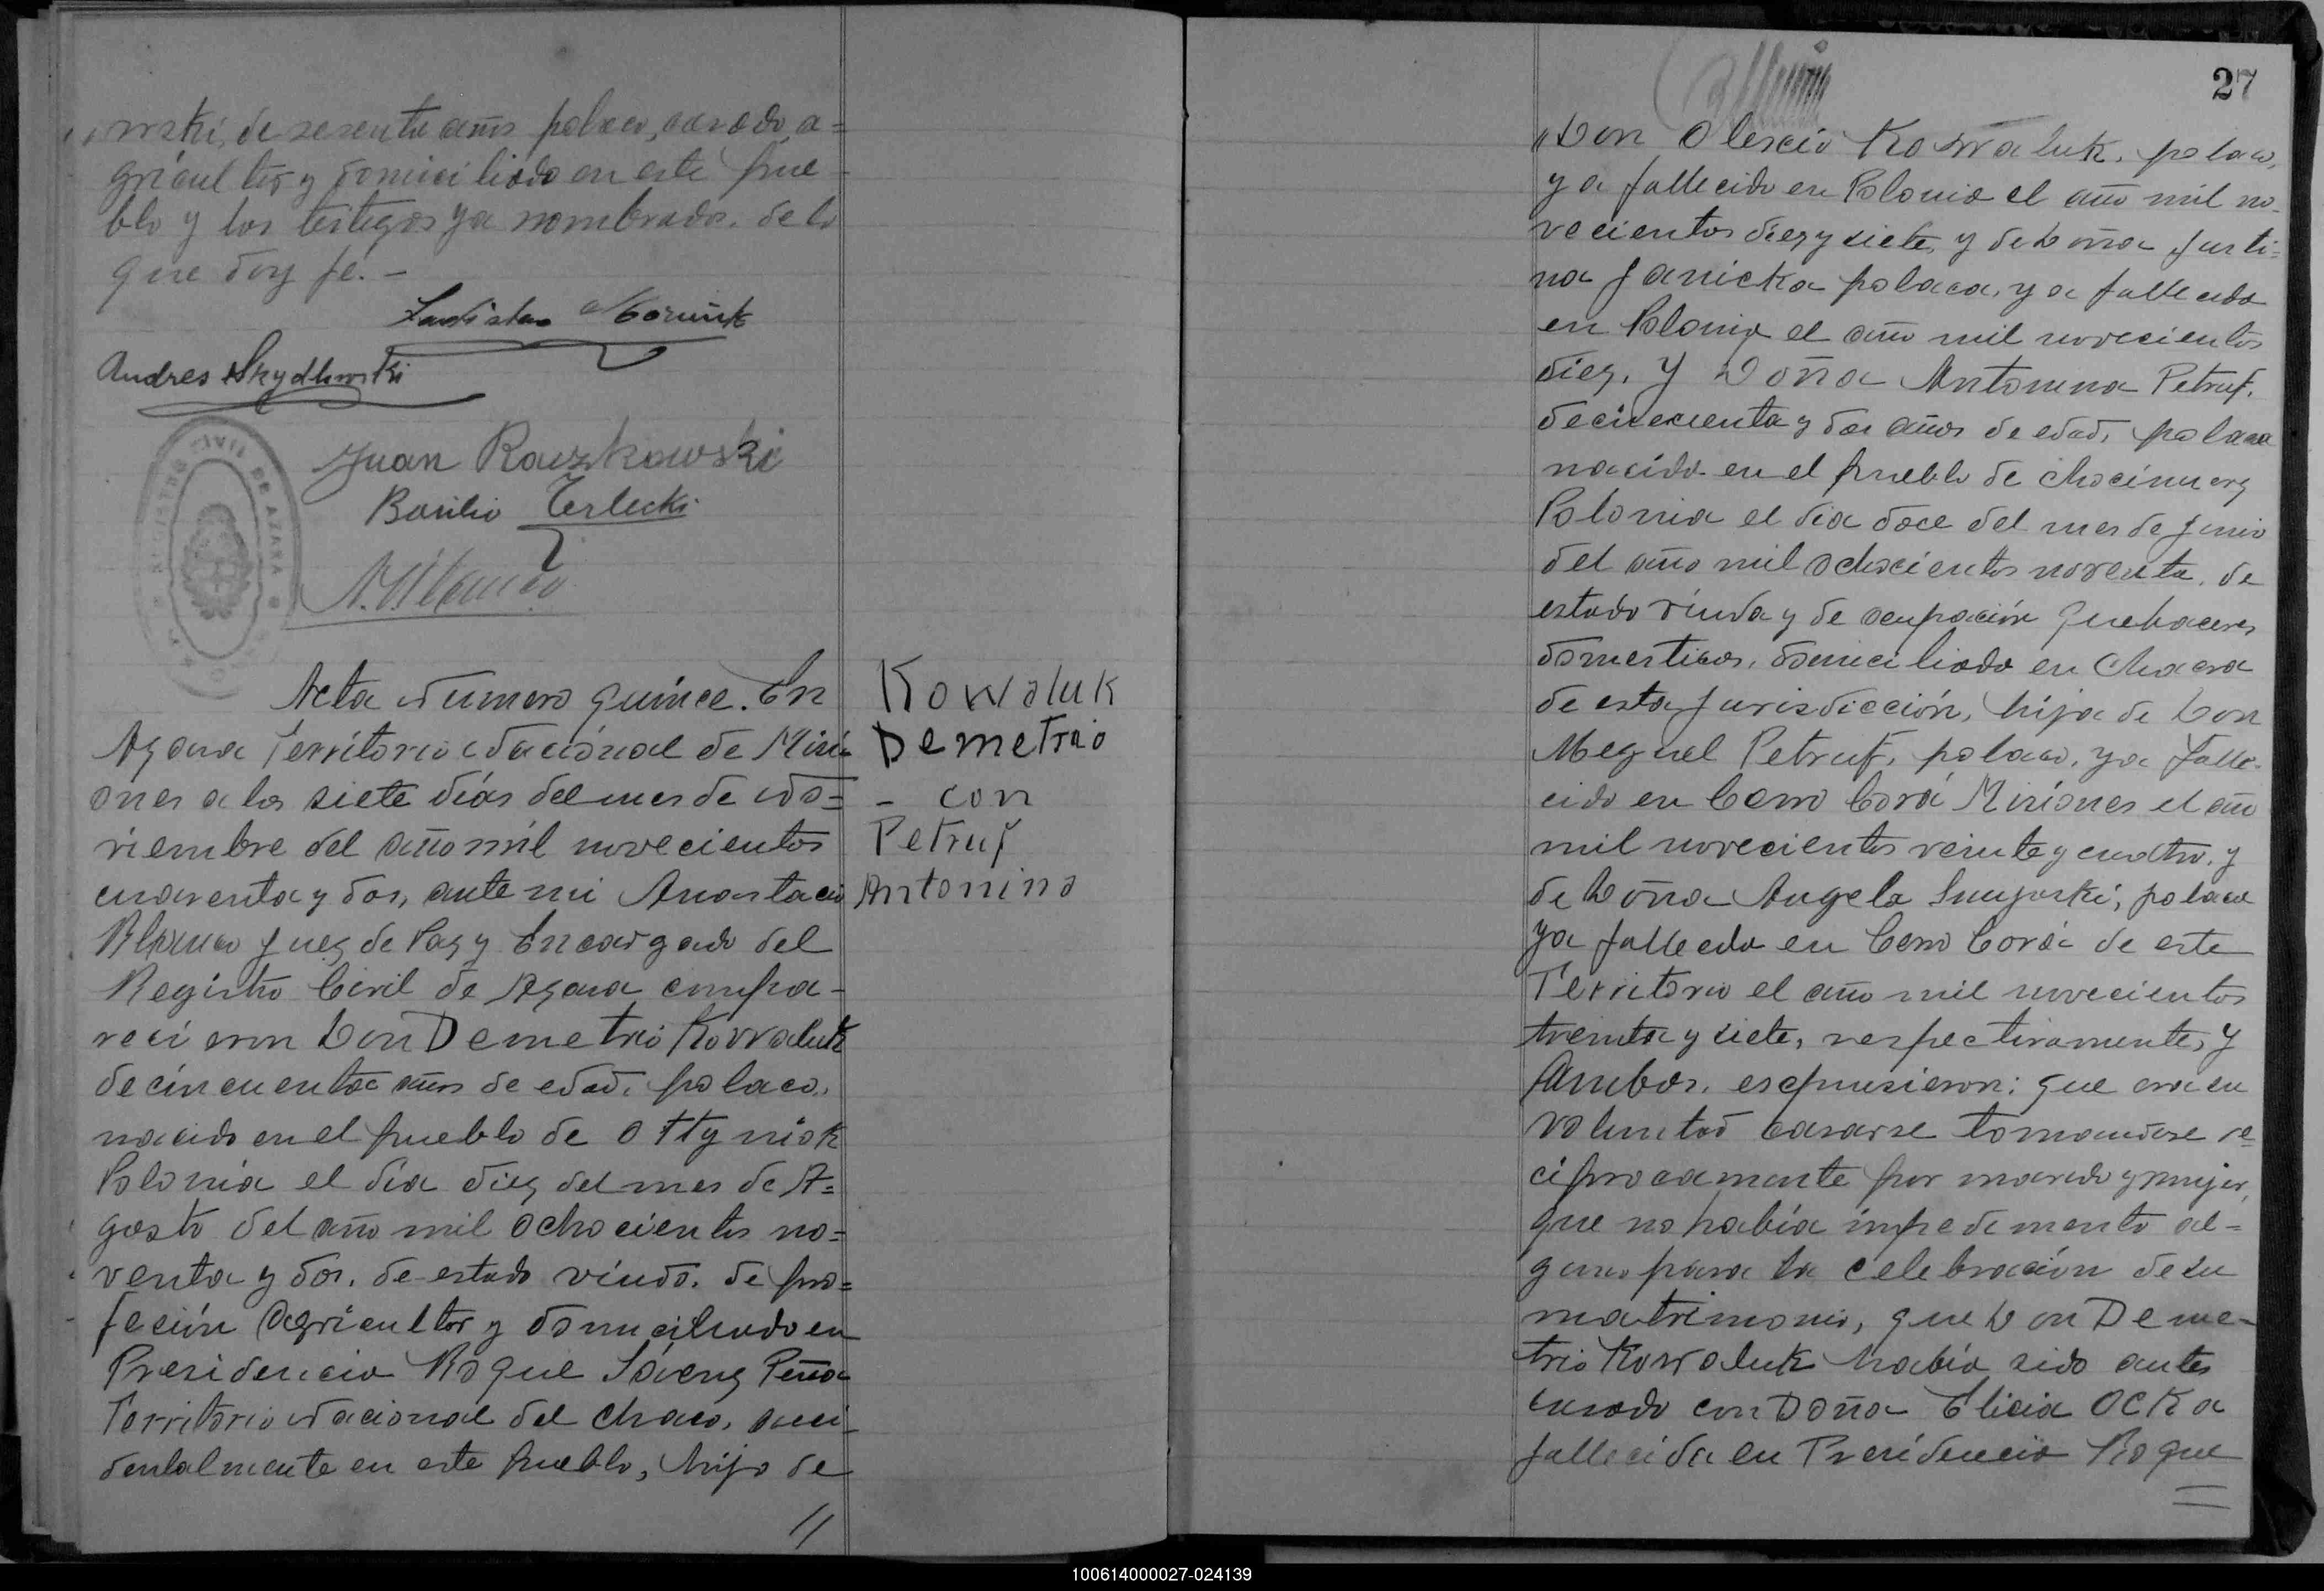 owski, de sesenta años polaco, casado, a=
gricultor y domiciliado en este pue-
blo y los testigos ya nombrados. de lo
que doy fé.-
Ladislao
Andres Skydlowski
Juan Raczkowski
Basilio Terlecki
A. Blanco
REGISTRO CIVIL DE AZARA
Acta Numero quince. En
Azara Territorio Nacional de Misi-
ones a los siete días del mes de No=
viembre del año mil novecientos
cuarenta y dos, ante mi Anastacio
Blanco Juez de Paz y Encargado del
Registro Civil de Azara compa-
recieron Don Demetrio Kowaluk
de cincuenta años de edad, polaco,
nacido en el pueblo de Ottyniok
Polonia el día diez del mes de A=
gosto del año mil ochocientos no=
venta y dos, de estado viudo, de pro=
feción agricultor y domiciliado en
Presidencia Roque Sáenz Peña
Territorio Nacional del Chaco, acci-
dentalmente en este pueblo, hijo de
//
Kowaluk
Demetrio
- con
Petruf
Antonina
27
"Don Olexcio Kowaluk, polaco,
ya fallecido en Polonia el año mil no-
vecientos diez y siete, y de Doña Justi=
na Janicka polaca, ya fallecida
en Polonia el año mil novecientos
diez. Y Doña Antonina Petruf,
de cincuenta y dos años de edad, polaca
nacida en el pueblo de Chocimierz
Polonia el día doce del mes de Junio
del año mil ochocientos noventa, de
estado viuda y de ocupación quehaceres
domesticos, domiciliada en Chacra
de esta Jurisdicción, hija de Don
Meguel Petruf, polaco, ya falle-
cido en Cerro Corá Misiones el año
mil novecientos veinte y cuatro, y
de Doña Angela, polaca
ya fallecida en Cerro Corá de este
Territorio el año mil novecientos
treinta y siete, respectivamente, y
Ambos, expusieron: que era su
voluntad casarse tomandose re=
ciprocamente por marido y mujer,
que no había impedimento al=
guno para la celebración de su
matrimonio, que Don Deme-
trio Kowaluk había sido antes
casado con Doña Elicia Ocka
fallecida en Presidencia Roque
=